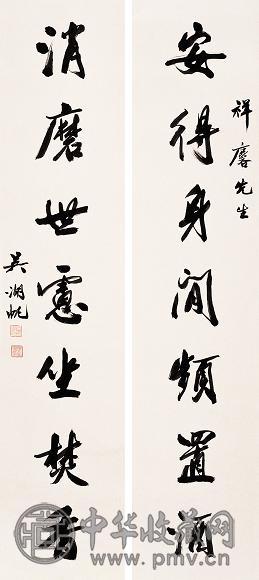 祥麐先生
安得身閒頻置酒
消磨世慮坐焚香
吴湖帆
中华收藏网
www.pmv.cn